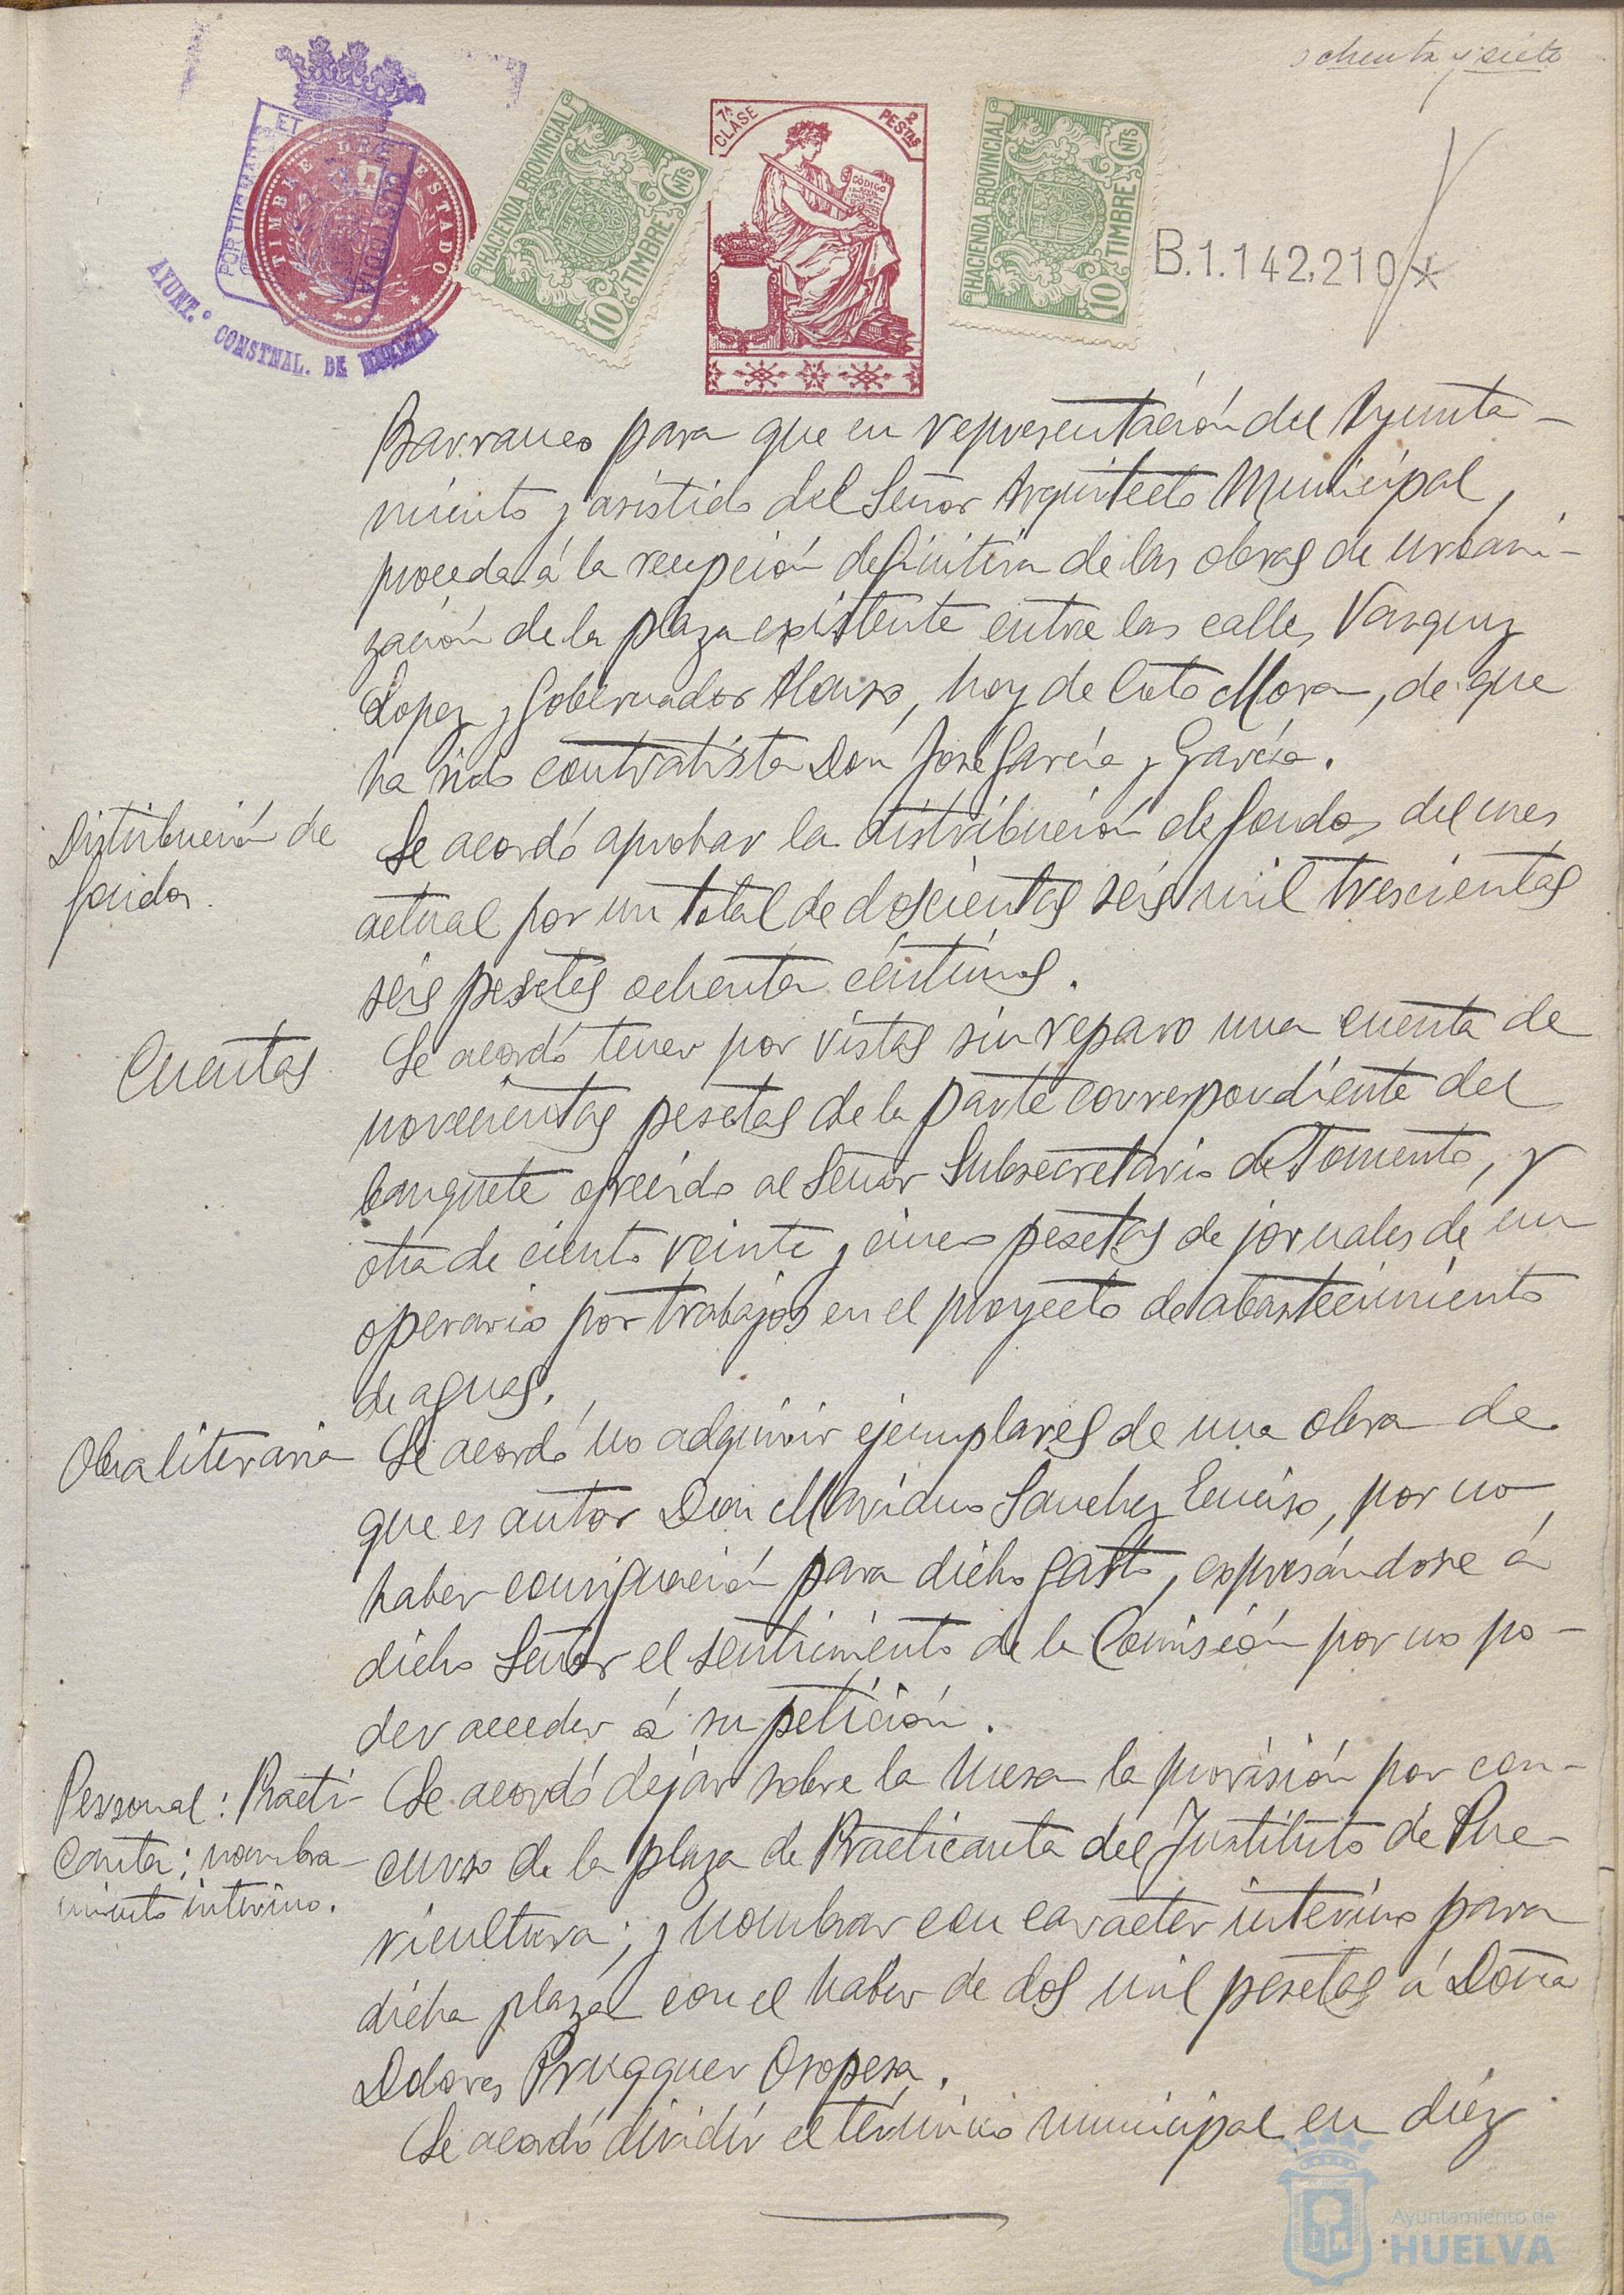 ochenta y siete
TIMBRE DEL ESTADO
PORTUS MARIS ET TERRAE CUSTODIA
AYUNT.º CONSTNAL. DE HUELVA
HACIENDA PROVINCIAL
10 CNTS
TIMBRE
7ª CLASE
2 PESTAS
CÓDIGO
HACIENDA PROVINCIAL
10 CNTS
TIMBRE
B.1.142,210*
Barranco para que en representación del Ayunta-
miento y asistido del Señor Arquitecto Municipal,
proceda á la recepción definitiva de las obras de urbani-
zación de la plaza existente entre las calles Vazquez
Lopez y Gobernador Alonso, hoy de Coto Mora, de que
ha sido contratista Don José García y García.
Distribución de
fondos.
Se acordó aprobar la distribución de fondos del mes
actual por un total de doscientas seis mil trescientas
seis pesetas ochenta céntimos.
Cuentas
Se acordó tener por vistas sin reparo una cuenta de
novecientas pesetas de la parte correspondiente del
banquete ofrecido al Señor Subsecretario de Fomento, y
otra de ciento veinte y cinco pesetas de jornales de un
operario por trabajos en el proyecto de abastecimiento
de aguas.
Obra literaria
Se acordó no adquirir ejemplares de una obra de
que es autor Don Mariano Sanchez Enciso, por no
haber consignación para dicho gasto, expresándose á
dicho Señor el sentimiento de la Comisión por no po-
der acceder á su petición.
Personal: Practi-
canta; nombra-
miento interino.
Se acordó dejar sobre la mesa la provisión por con-
curso de la plaza de Practicanta del Instituto de Pue-
ricultura; y nombrar con caracter interino para
dicha plaza con el haber de dos mil pesetas á Doña
Dolores Prugguer Oropesa.
Se acordó dividir el término municipal en diez
Ayuntamiento de
HUELVA